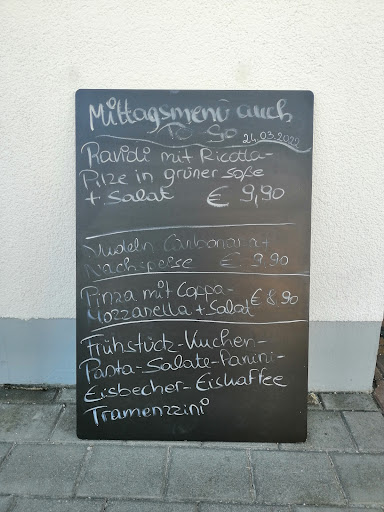 Mittagsmenü auch
To Go 24.03.2022
Ravioli mit Ricotta-
Pilze in grüner Soße
+ Salat € 9,90
Nudeln Carbonara +
Nachspeise € 9.90
Pinza mit Coppa-
Mozzarella + Salat € 8.90
Frühstück-Kuchen-
Pasta-Salate-Panini-
Eisbecher-Eiskaffee
Tramenzzini